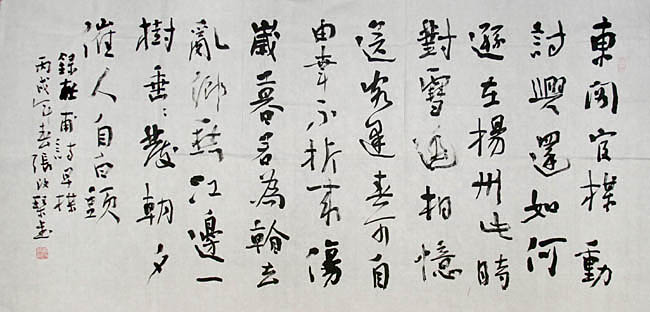 東閣官楳動
詩興還如何
遜在揚州此時
對雪遥相憶
送客逢春可自
由幸不折来傷
歲暮若為看去
亂鄉愁江邊一
樹垂〻發朝夕
催人自白頭
錄杜甫詩早楳
丙戌年春張